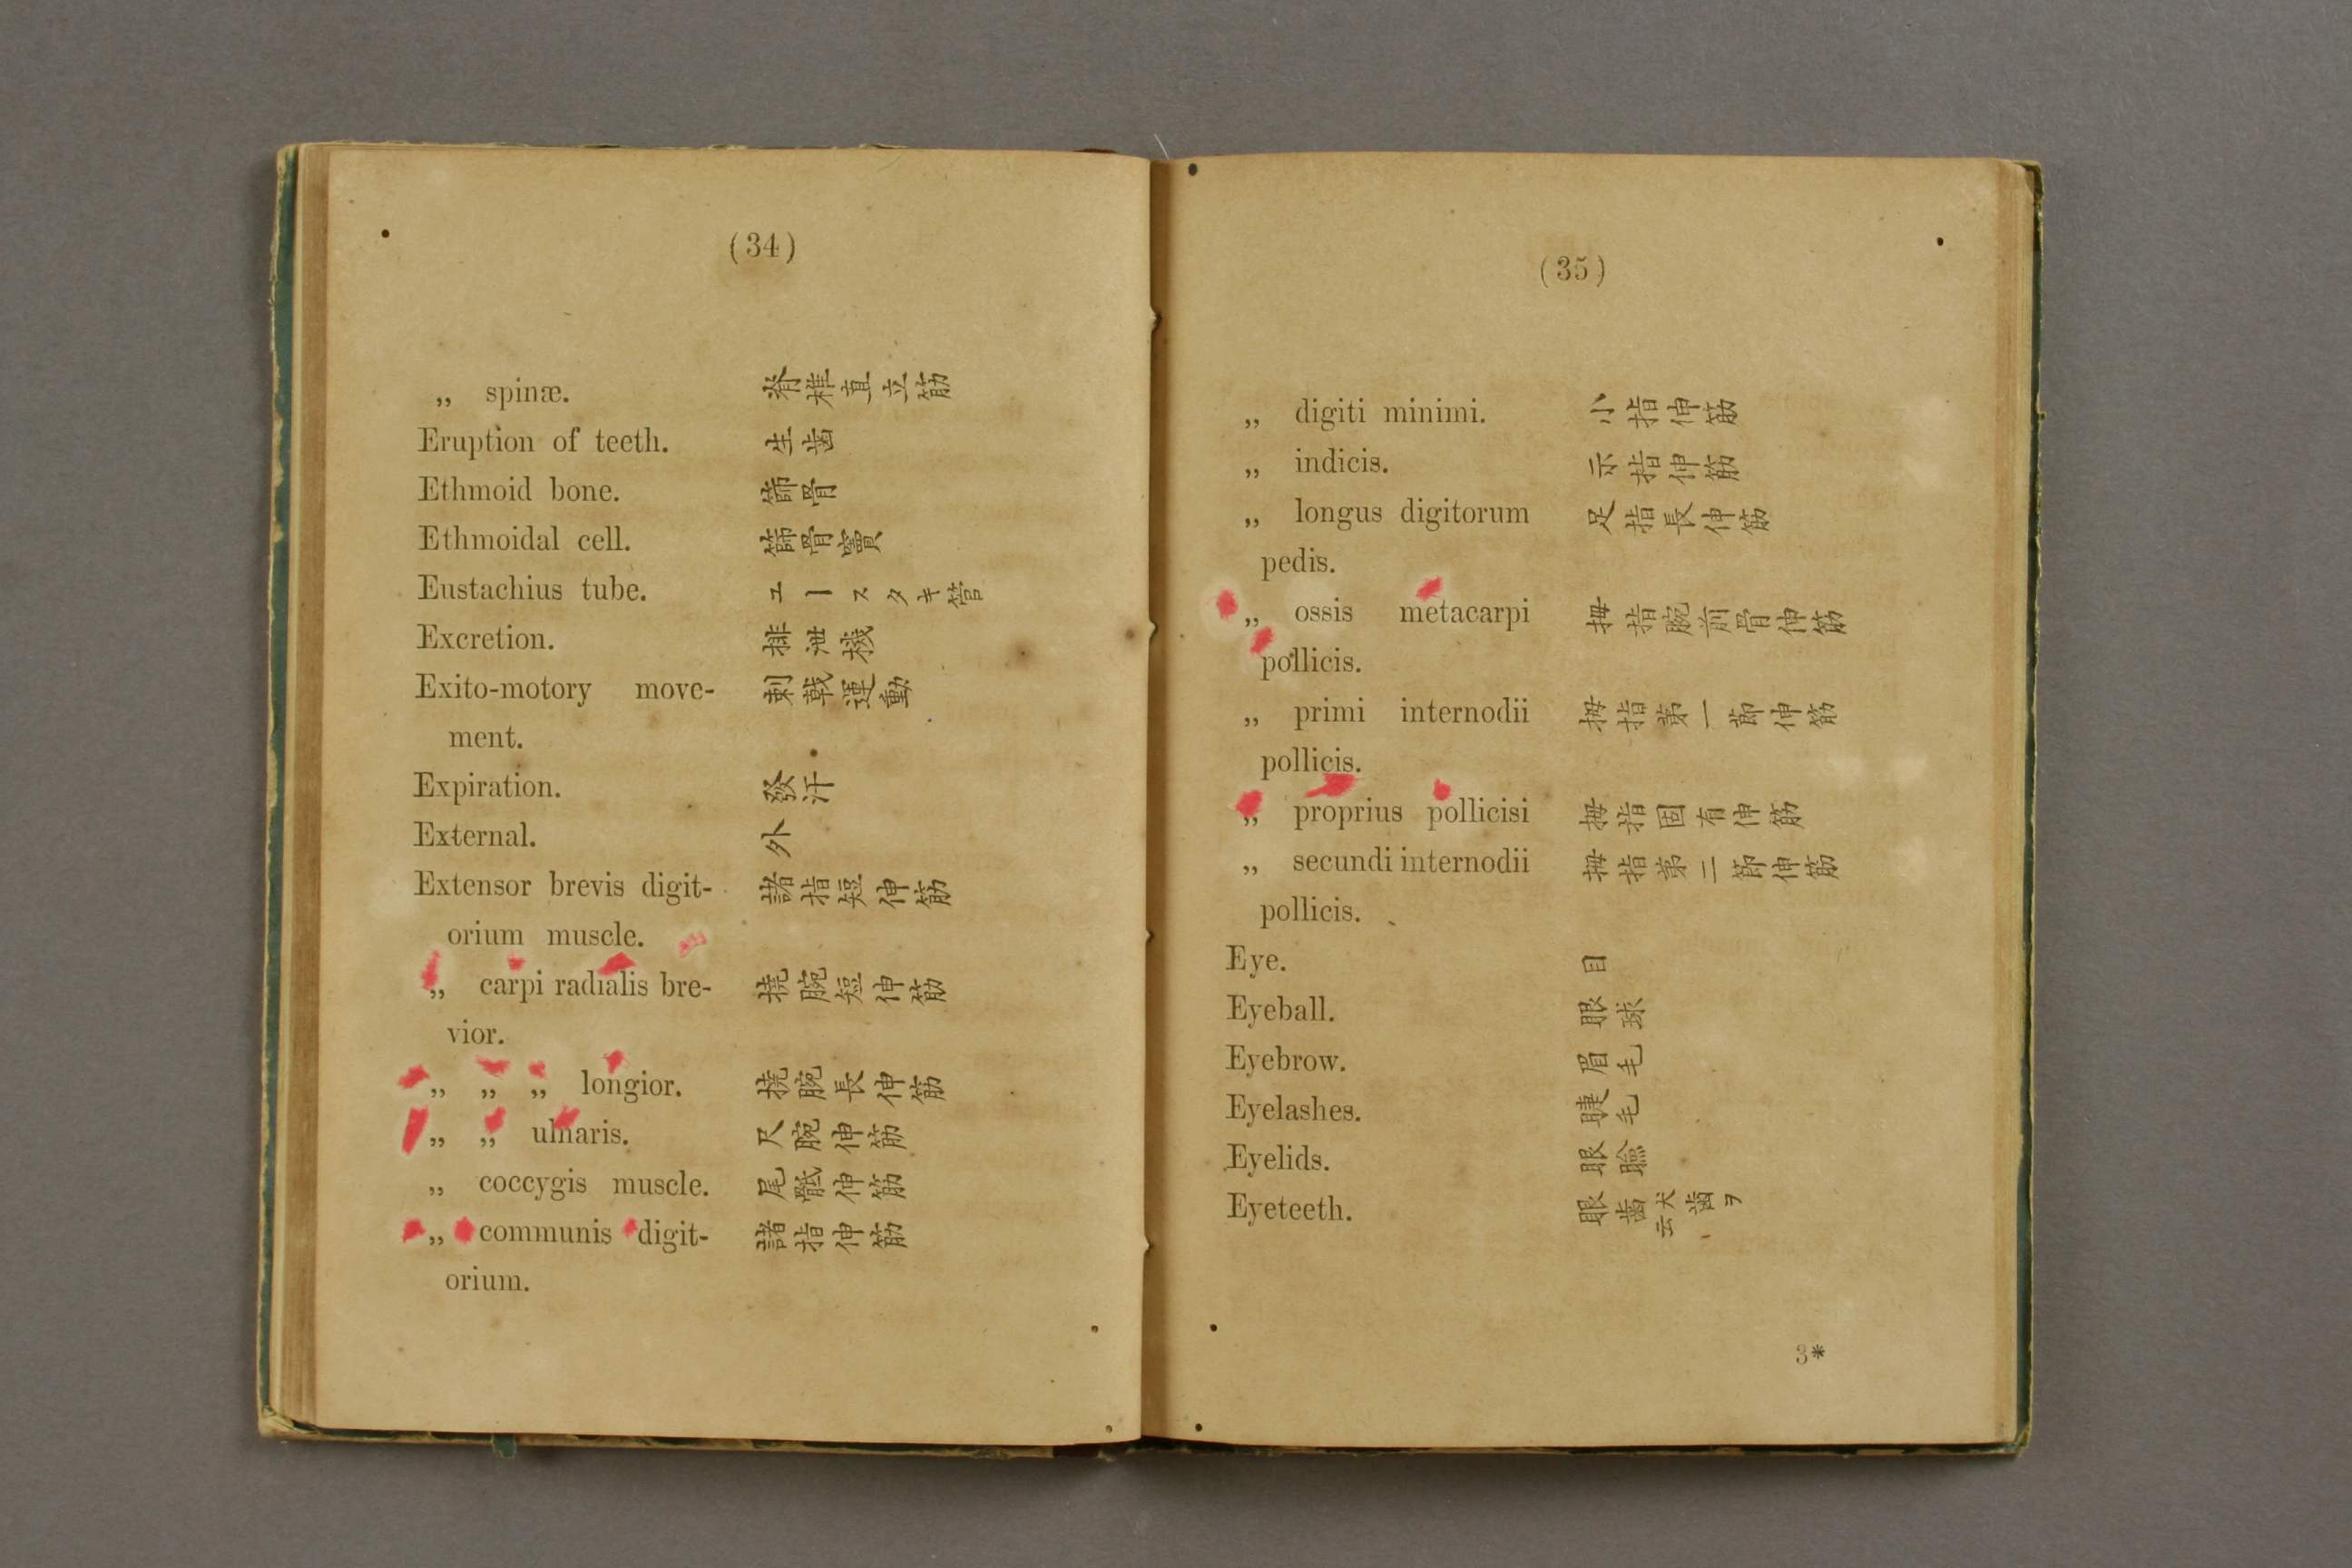 (34)
„ spinæ. 脊椎直立筋
Eruption of teeth. 生歯
Ethmoid bone. 篩骨
Ethmoidal cell. 篩骨竇
Eustachius tube. ユースタキ管
Excretion. 排泄機
Exito-motory move-
ment. 刺戟運動
Expiration. 發汗
External. 外
Extensor brevis digit-
orium muscle. 諸指短伸筋
„ carpi radialis bre-
vior. 撓腕短伸筋
„ „ „ longior. 撓腕長伸筋
„ „ ulnaris. 尺腕伸筋
„ coccygis muscle. 尾骶伸筋
„ communis digit-
orium. 諸指伸筋
(35)
„ digiti minimi. 小指伸筋
„ indicis. 示指伸筋
„ longus digitorum
pedis. 足指長伸筋
„ ossis metacarpi
pollicis. 拇指腕前骨伸筋
„ primi internodii
pollicis. 拇指第一節伸筋
„ proprius pollicisi 拇指固有伸筋
„ secundi internodii
pollicis. 拇指第二節伸筋
Eye. 目
Eyeball. 眼球
Eyebrow. 眉毛
Eyelashes. 睫毛
Eyelids. 眼瞼
Eyeteeth. 眼歯犬歯ヲ云
3*